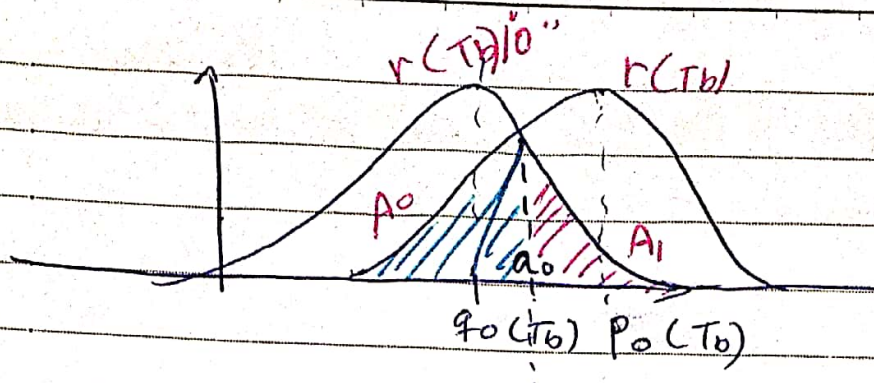 r(Tb)|"0"
r(Tb)
A0
A1
a0
q0(Tb) p0(Tb)